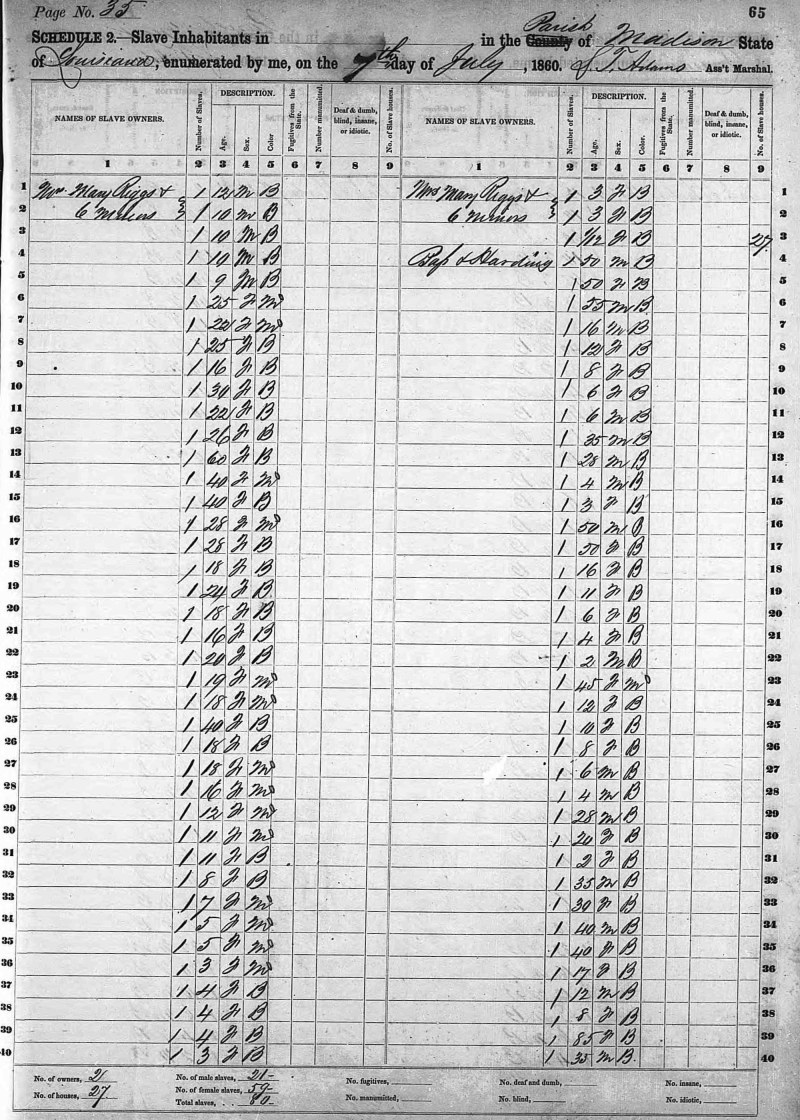 Page No. 35
65
SCHEDULE 2.—Slave Inhabitants in in the County Parish of Madison State
of Louisiana, enumerated by me, on the 7th day of July, 1860. J. T. Adams Ass't Marshal.
NAMES OF SLAVE OWNERS. Number of Slaves. DESCRIPTION. Age. Sex. Color Fugitives from the State. Number manumitted. Deaf & dumb, blind, insane, or idiotic. No. of Slave houses. NAMES OF SLAVE OWNERS. Number of Slaves. DESCRIPTION. Age. Sex. Color. Fugitives from the State. Number manumitted. Deaf & dumb, blind, insane, or idiotic. No. of Slave houses.
1 2 3 4 5 6 7 8 9 1 2 3 4 5 6 7 8 9
1 Mrs Mary Riggs & 1 12 M B Mrs Mary Riggs & 1 3 F B 1
2 6 Minors 1 10 M B 6 Minors 1 3 F B 2
3 1 10 M B 1 1/12 F B 27 3
4 1 10 M B Bass & Harding 1 50 M B 4
5 1 9 M B 1 50 F B 5
6 1 25 F M 1 55 M B 6
7 1 22 F M 1 16 M B 7
8 1 25 F B 1 12 F B 8
9 1 16 F B 1 8 F B 9
10 1 30 F B 1 6 F B 10
11 1 22 F B 1 6 M B 11
12 1 26 F B 1 35 M B 12
13 1 60 F B 1 28 M B 13
14 1 40 F M 1 4 M B 14
15 1 40 F B 1 3 F B 15
16 1 28 F M 1 50 M B 16
17 1 28 F B 1 50 F B 17
18 1 18 F B 1 16 F B 18
19 1 24 F B 1 11 F B 19
20 1 18 F B 1 6 F B 20
21 1 16 F B 1 4 F B 21
22 1 20 F B 1 2 M B 22
23 1 19 F M 1 45 F M 23
24 1 18 F M 1 12 F B 24
25 1 40 F B 1 10 F B 25
26 1 18 F B 1 8 F B 26
27 1 18 F M 1 6 M B 27
28 1 16 F M 1 4 M B 28
29 1 12 F M 1 28 M B 29
30 1 11 F M 1 20 F B 30
31 1 11 F B 1 2 F B 31
32 1 8 F B 1 35 M B 32
33 1 7 F M 1 30 F B 33
34 1 5 F M 1 40 M B 34
35 1 5 F M 1 40 F B 35
36 1 3 F M 1 17 F B 36
37 1 4 F B 1 12 M B 37
38 1 4 F B 1 8 F B 38
39 1 4 F B 1 85 F B 39
40 1 3 F B 1 35 M B 40
No. of owners, 2 No. of male slaves, 21 No. fugitives, No. deaf and dumb, No. insane,
No. of houses, 27 No. of female slaves, 59 No. manumitted, No. blind, No. idiotic,
Total slaves, 80